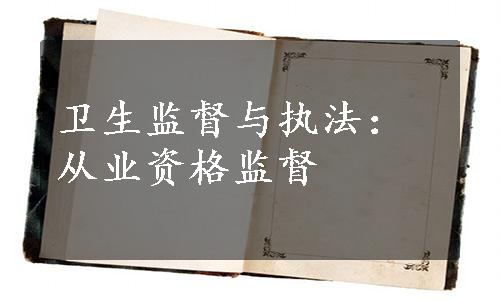 卫生监督与执法：
从业资格监督